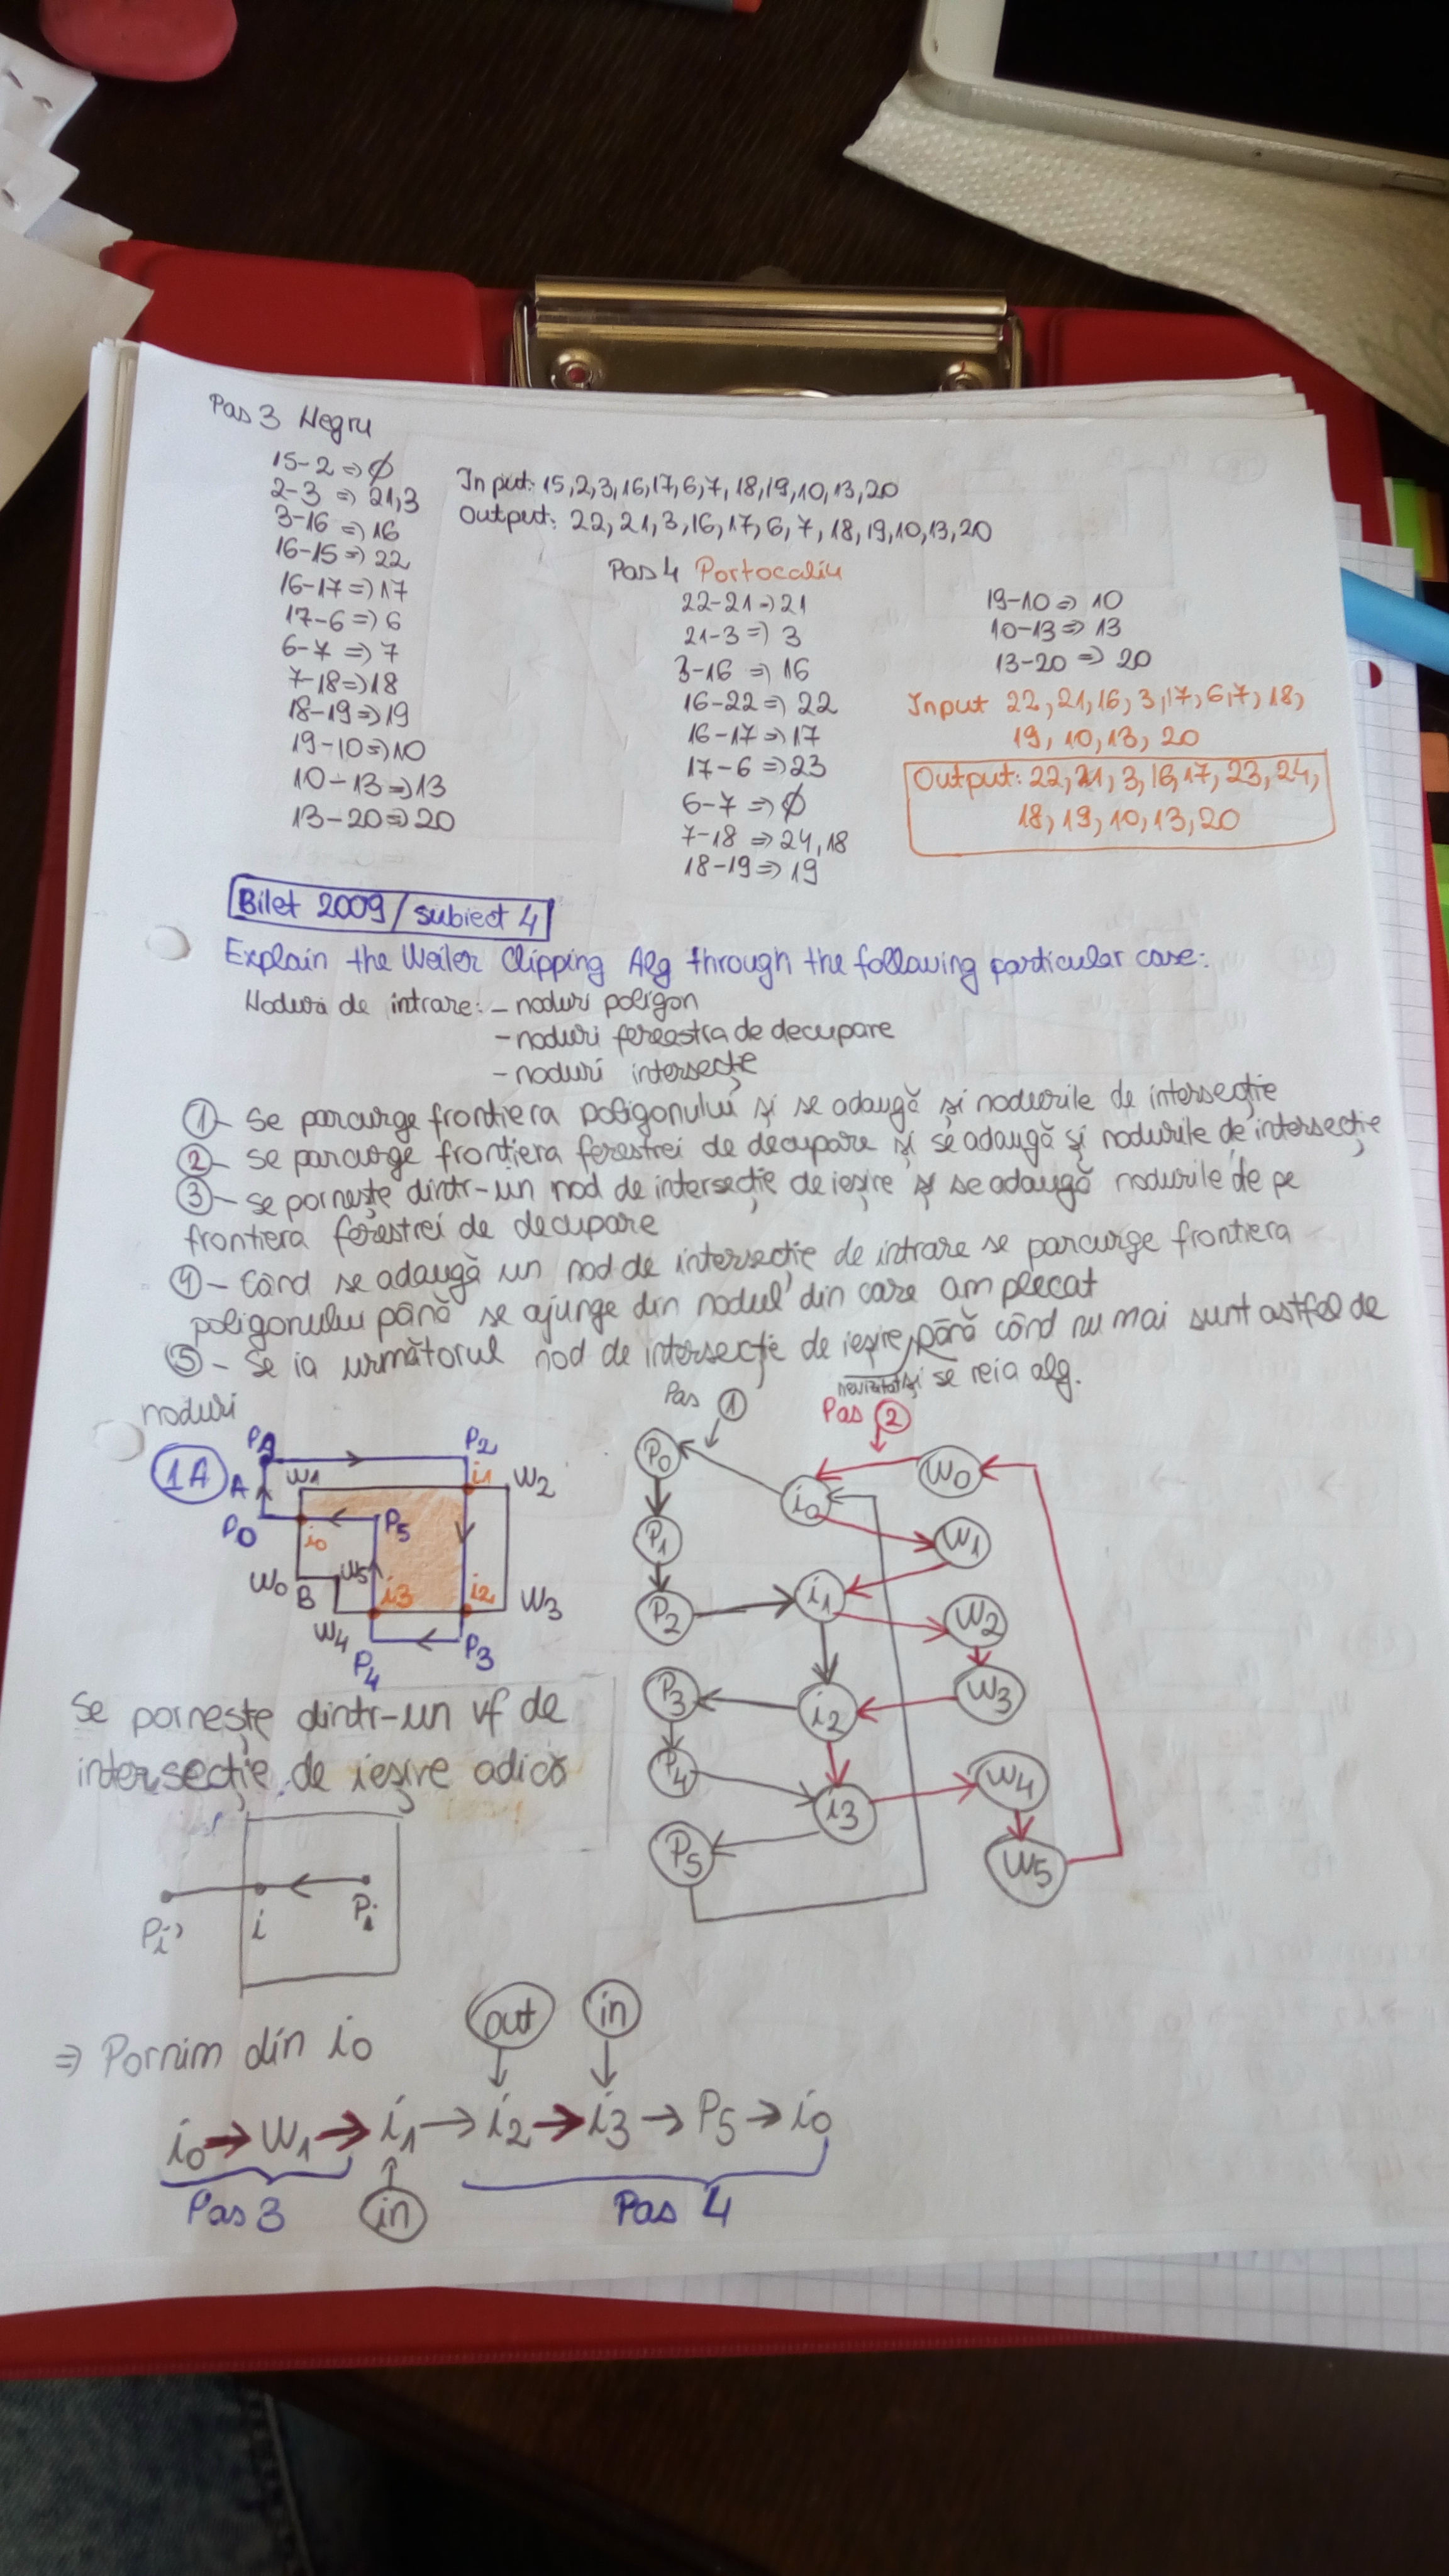 Pas 3 Negru
15-2 => Ø
2-3 => 21,3
3-16 => 16
16-15 => 22
16-17 => 17
17-6 => 6
6-7 => 7
7-18 => 18
18-19 => 19
19-10 => 10
10-13 => 13
13-20 => 20
Input: 15,2,3,16,17,6,7,18,19,10,13,20
Output: 22,21,3,16,17,6,7,18,19,10,13,20
Pas 4 Portocaliu
22-21 => 21
21-3 => 3
3-16 => 16
16-22 => 22
16-17 => 17
17-6 => 23
6-7 => Ø
7-18 => 24,18
18-19 => 19
19-10 => 10
10-13 => 13
13-20 => 20
Input 22,21,16,3,17,6,7,18,
19,10,13,20
Output: 22,21,3,16,17,23,24,
18,19,10,13,20
Bilet 2009/subiect 4
Explain the Weiler Clipping Alg through the following particular case:
de intrare: - noduri poligon
- noduri fereastra de decupare
- noduri intersecție
① - Se parcurge frontiera poligonului și se adaugă și nodurile de intersecție
② - se parcurge frontiera ferestrei de decupare și se adaugă și nodurile de intersecție
③ - se pornește dintr-un nod de intersecție de ieșire și se adaugă nodurile de pe
frontiera ferestrei de decupare
④ - Când se adaugă un nod de intersecție de intrare se parcurge frontiera
poligonului până se ajunge din nodul din care am plecat
⑤ - Se ia următorul nod de intersecție de ieșire, până când nu mai sunt astfel de
noduri
nevizitat și se reia alg.
1A
A
P2
W1
i1
W2
P0
i0
P5
W0
B
W5
i3
i2
W3
W4
P4
P3
Pas ①
Pas ②
P0
i0
W0
P1
W1
P2
i1
W2
P3
i2
W3
P4
i3
W4
P5
W5
Se pornește dintr-un vf de
intersecție de ieșire adică
Pi'
i
Pi
=> Pornim din i0
out
in
i0 → W1 → i1 → i2 → i3 → P5 → i0
Pas 3
in
Pas 4